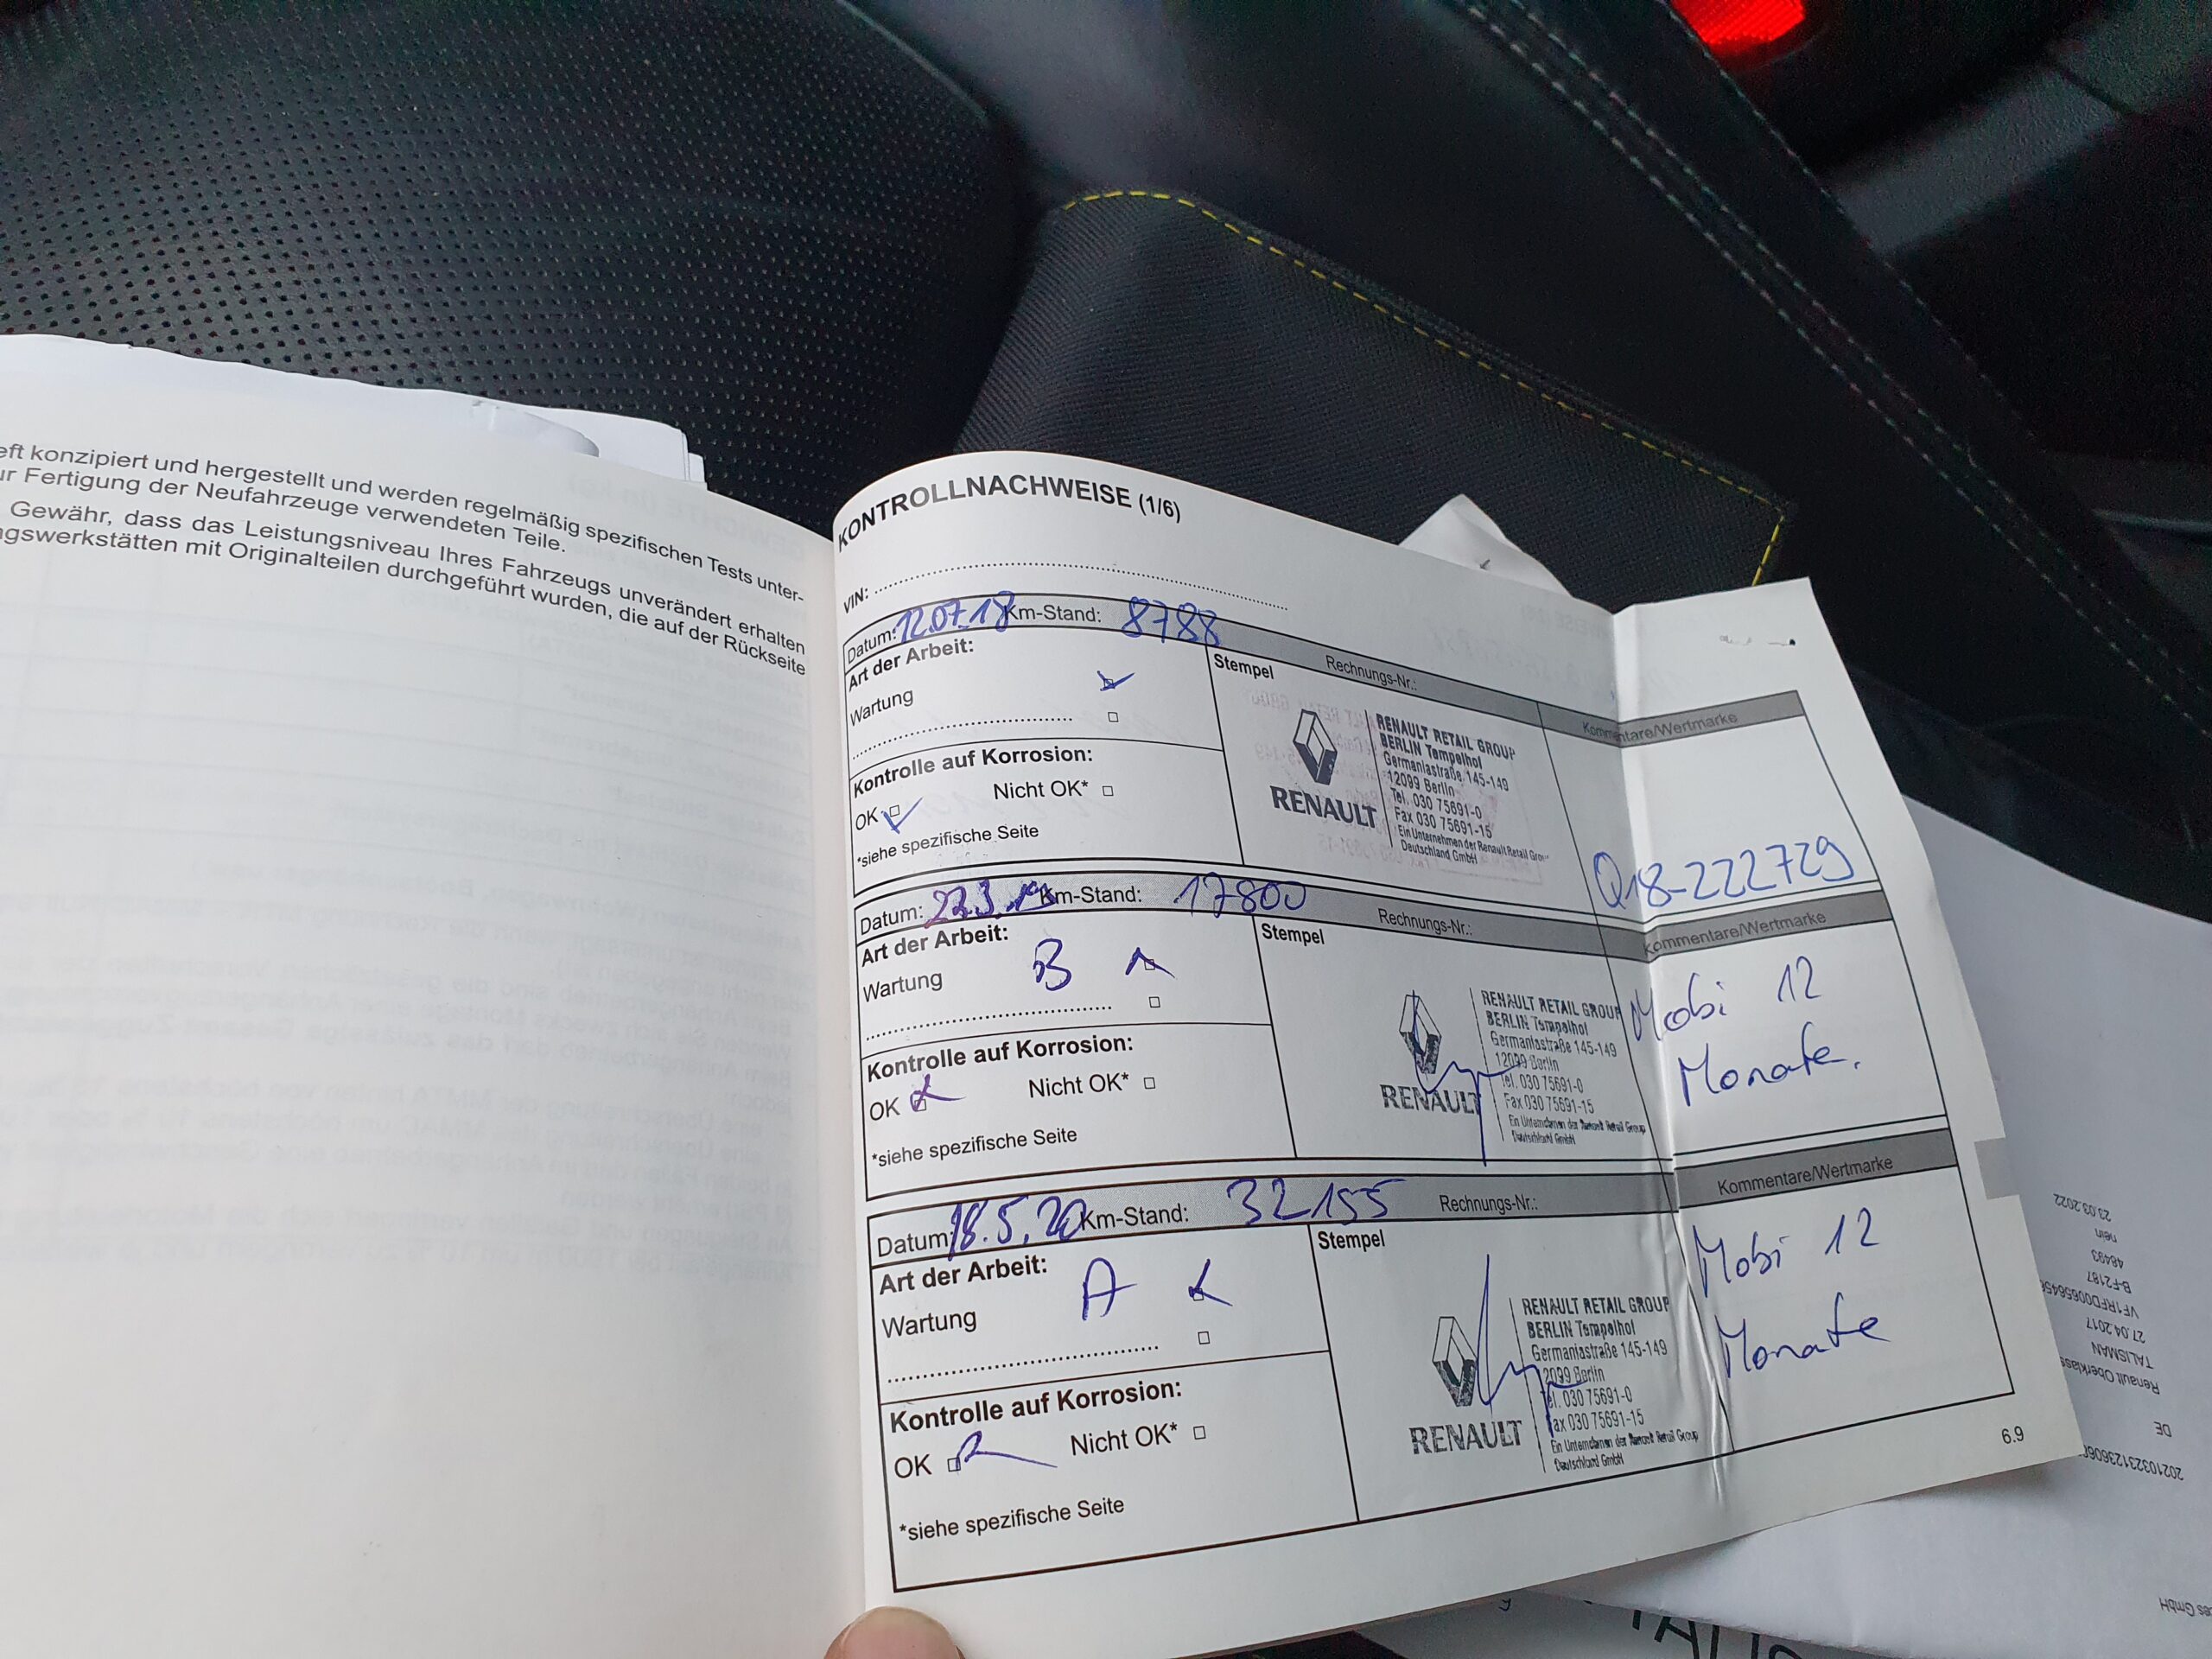 eft konzipiert und hergestellt und werden regelmäßig spezifischen Tests unter-
ur Fertigung der Neufahrzeuge verwendeten Teile.
Gewähr, dass das Leistungsniveau Ihres Fahrzeugs unverändert erhalten
ngswerkstätten mit Originalteilen durchgeführt wurden, die auf der Rückseite
KONTROLLNACHWEISE (1/6)
VIN:
Datum: 12.07.18 Km-Stand: 8788 Rechnungs-Nr.: Kommentare/Wertmarke
Art der Arbeit:
Wartung
Kontrolle auf Korrosion:
OK Nicht OK*
*siehe spezifische Seite
Stempel
RENAULT
RENAULT RETAIL GROUP
BERLIN Tempelhof
Germaniastraße 145-149
12099 Berlin
Tel. 030 75691-0
Fax 030 75691-15
Ein Unternehmen der Renault Retail Group
Deutschland GmbH
Q18-222729
Datum: Km-Stand: 17800 Rechnungs-Nr.: Kommentare/Wertmarke
Art der Arbeit:
Wartung B
Kontrolle auf Korrosion:
OK Nicht OK*
*siehe spezifische Seite
Stempel
RENAULT
RENAULT RETAIL GROUP
BERLIN Tempelhof
Germaniastraße 145-149
12099 Berlin
Tel. 030 75691-0
Fax 030 75691-15
Ein Unternehmen der Renault Retail Group
Deutschland GmbH
Mobi 12
Monate.
Datum: 18.5.20 Km-Stand: 32155 Rechnungs-Nr.: Kommentare/Wertmarke
Art der Arbeit:
Wartung A
Kontrolle auf Korrosion:
OK Nicht OK*
*siehe spezifische Seite
Stempel
RENAULT
RENAULT RETAIL GROUP
BERLIN Tempelhof
Germaniastraße 145-149
2099 Berlin
el. 030 75691-0
ax 030 75691-15
Ein Unternehmen der Renault Retail Group
Deutschland GmbH
Mobi 12
Monate
6.9
DE
Renault Oberklass
TALISMAN
27.04.2017
B-F2187
48493
nein
23.03.2022